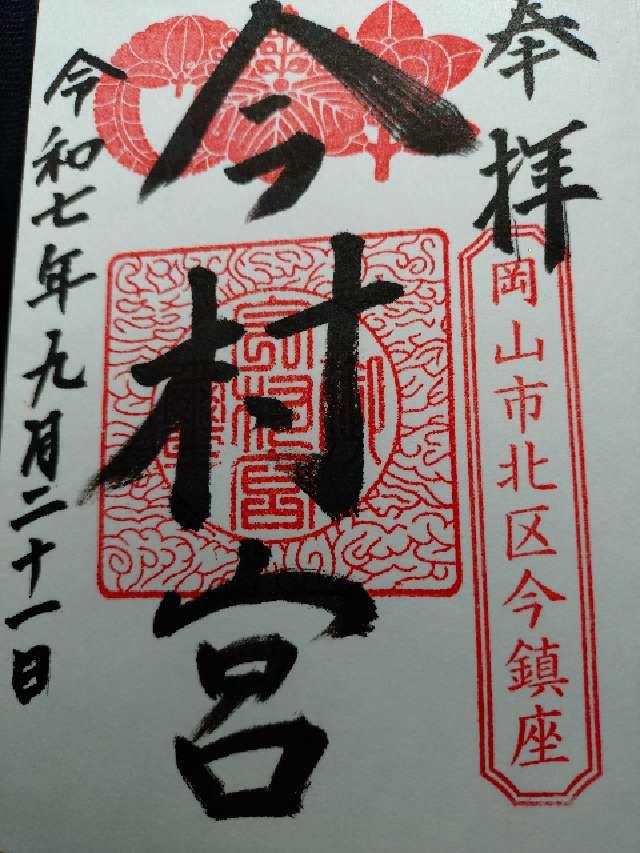 奉拝
岡山市北区今鎮座
今村宮
令和七年九月二十一日